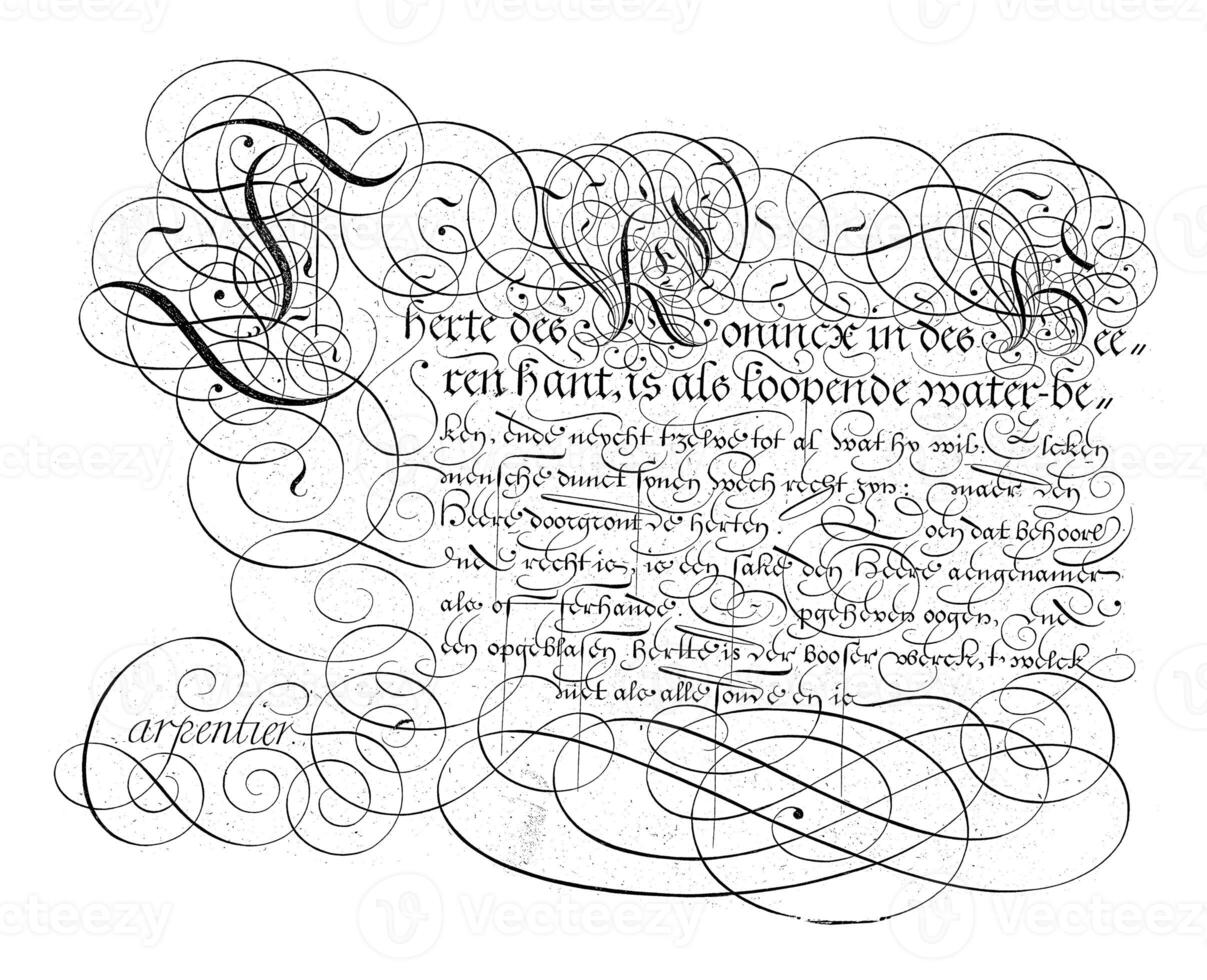 T herte des Konincx in des Hee„
ren hant, is als loopende water-be„
ken, ende neycht tzelve tot al wat hy wil. Elcken
mensche dunct synen wech recht zyn: maer den
Heere doorgront de herten. Doen dat behoorl
ende recht is, is een sake den Heere aengenamer
als offerhande. Opgeheven oogen, ende
een opgeblasen hertte is der booser werck, twelck
niet als alle sonde en is
Carpentier.
vecteezy